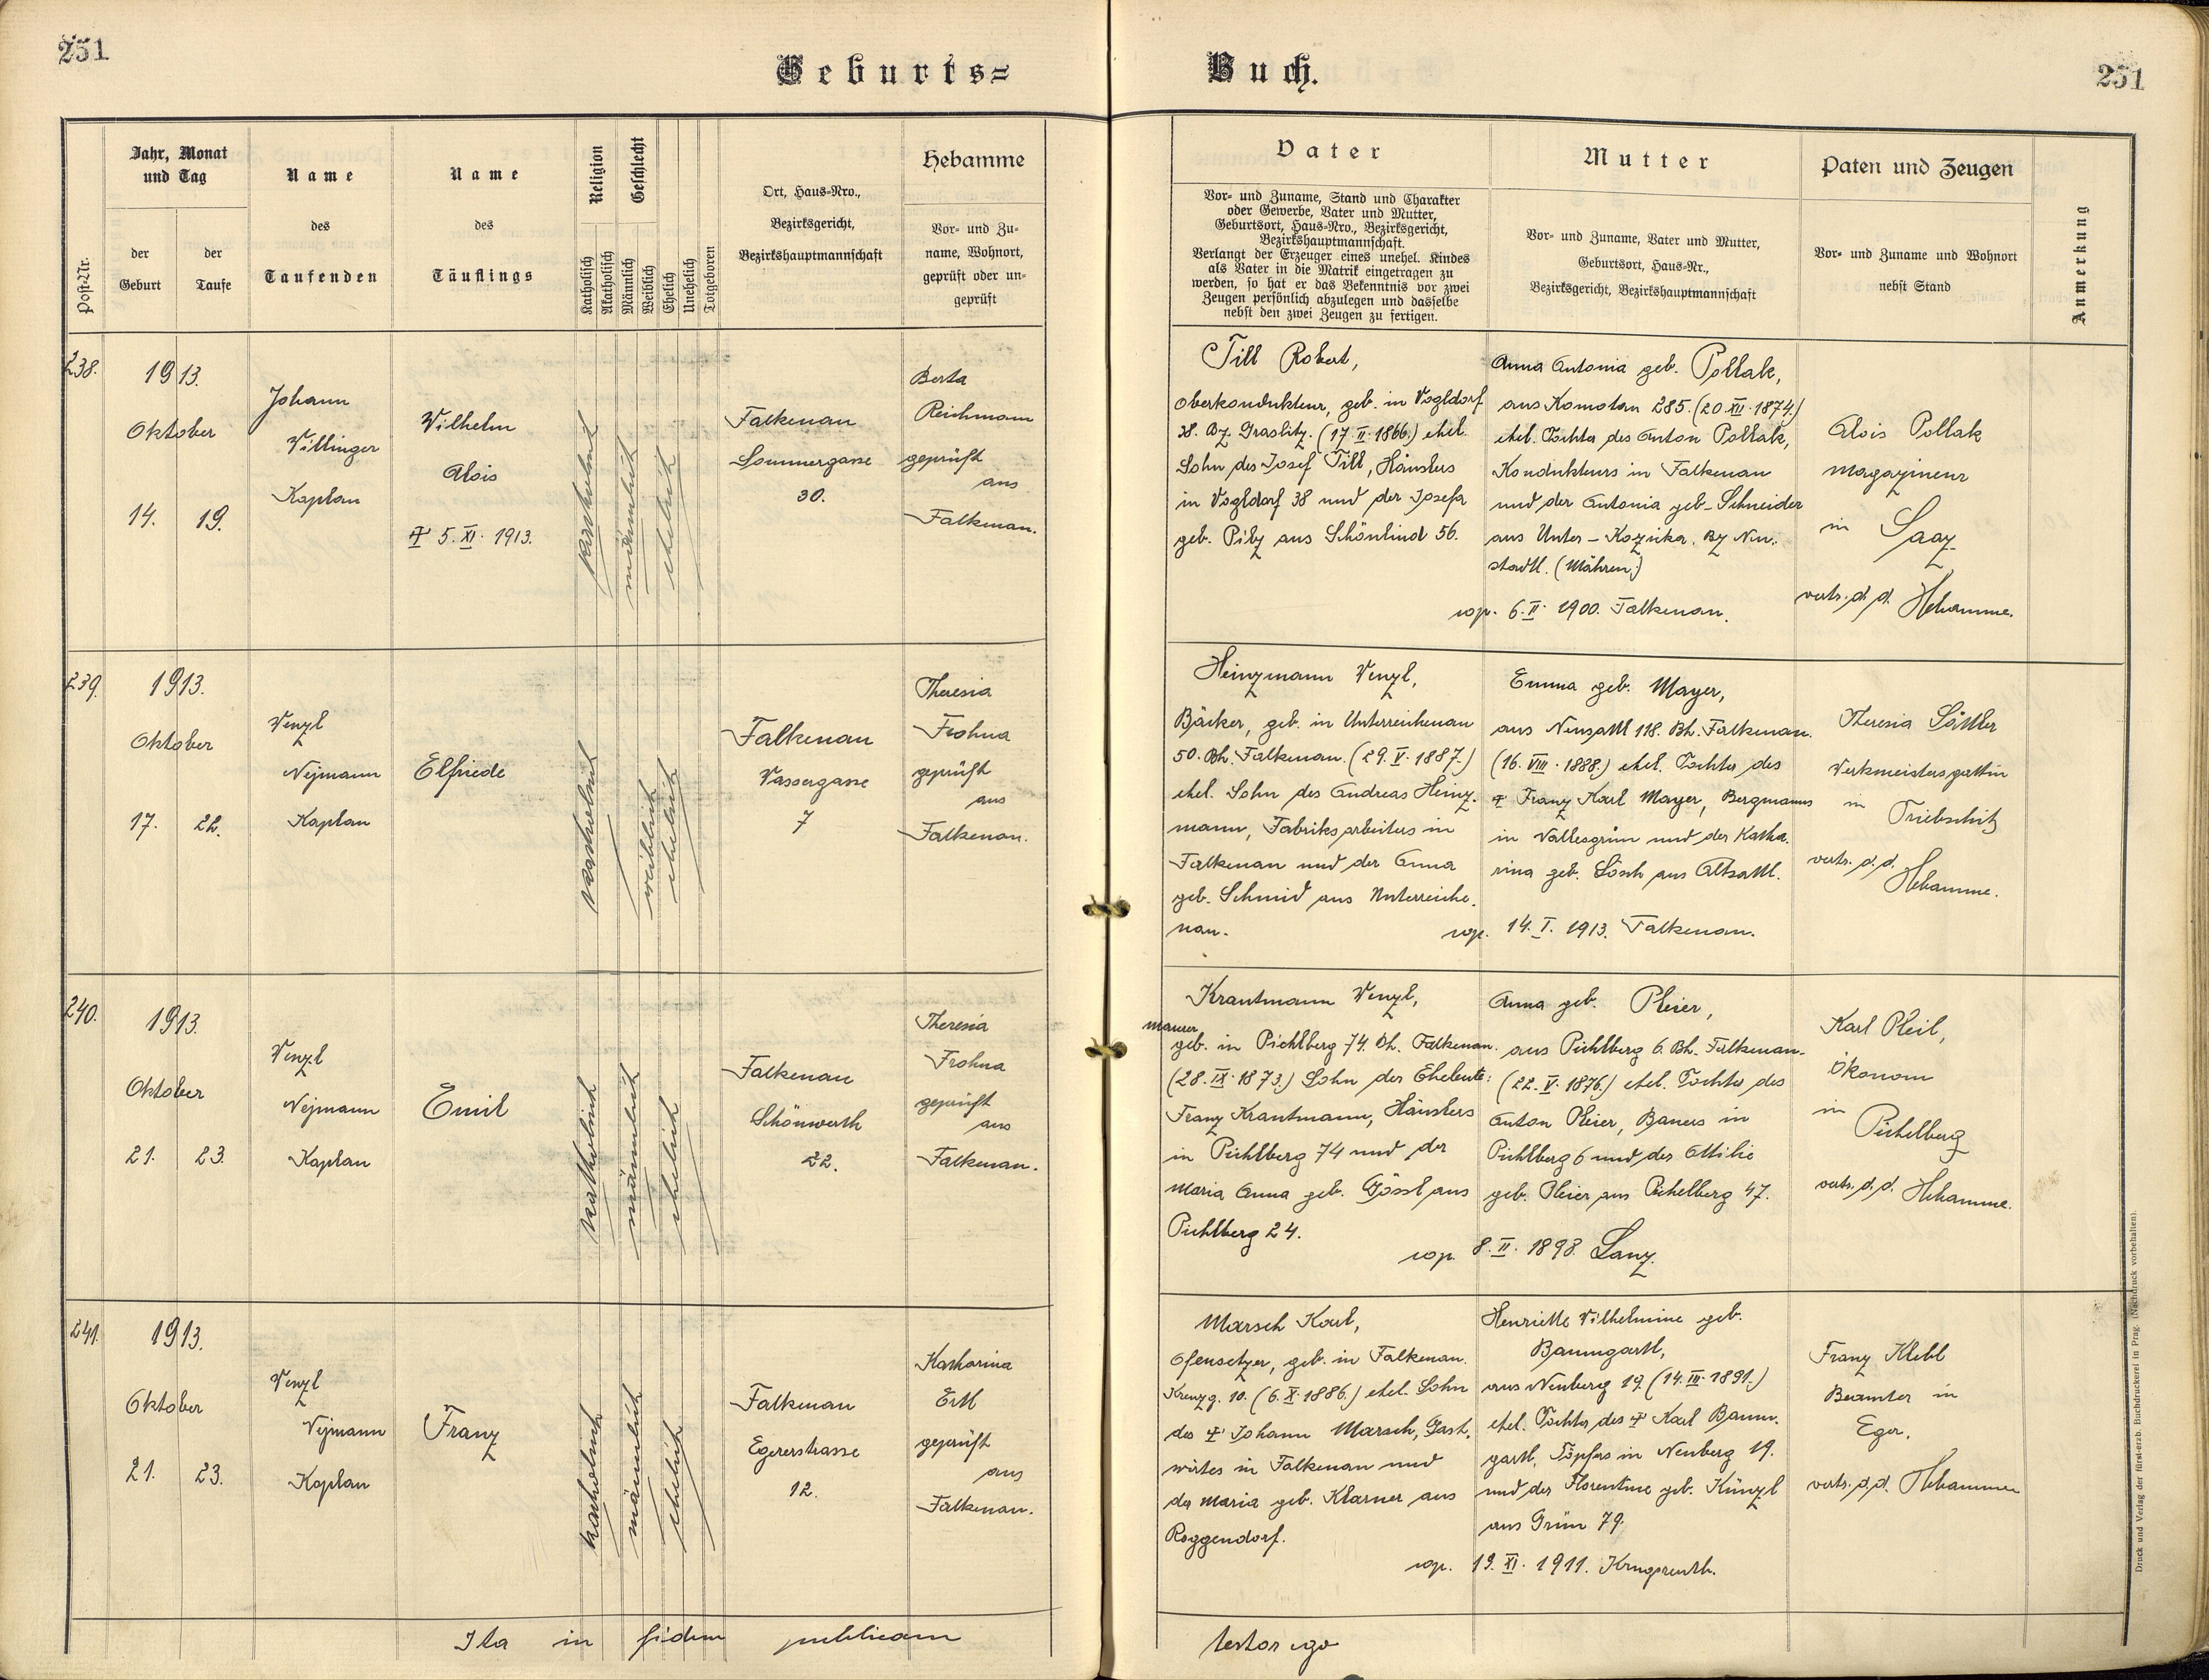 251
Geburts=
Buch.
251
Post-Nr.
Jahr, Monat
und Tag
der
Geburt
der
Taufe
Name
des
Taufenden
Name
des
Täuflings
Religion
Katholisch
Akatholisch
Geschlecht
Männlich
Weiblich
Ehelich
Unehelich
Totgeboren
Ort, Haus-Nro.,
Bezirksgericht,
Bezirkshauptmannschaft
Hebamme
Vor- und Zu-
name, Wohnort,
geprüft oder un-
geprüft
Vater
Vor- und Zuname, Stand und Charakter
oder Gewerbe, Vater und Mutter,
Geburtsort, Haus-Nro., Bezirksgericht,
Bezirkshauptmannschaft.
Verlangt der Erzeuger eines unehel. Kindes
als Vater in die Matrik eingetragen zu
werden, so hat er das Bekenntnis vor zwei
Zeugen persönlich abzulegen und dasselbe
nebst den zwei Zeugen zu fertigen.
Mutter
Vor- und Zuname, Vater und Mutter,
Geburtsort, Haus-Nr.,
Bezirksgericht, Bezirkshauptmannschaft
Paten und Zeugen
Vor- und Zuname und Wohnort
nebst Stand
Anmerkung
238.
1913.
Oktober
14.
19.
Johann
Willinger
Kaplan
Wilhelm
Alois
5. XI. 1913.
katholisch
männlich
ehelich
Falkenau
Sommergasse
30.
Berta
Reichmann
geprüft
aus
Falkenau.
Till Robert,
Oberkondukteur, geb. in Vogldorf
38. Bz. Graslitz. (17. II. 1866.) ehel.
Sohn des Josef Till, Häuslers
in Vogldorf 38 und der Josefa
geb. Pilz aus Schönlind 56.
Anna Antonia geb. Pollak,
aus Komotau 285. (20. XII. 1874.)
ehel. Tochter des Anton Pollak,
Kondukteurs in Falkenau
und der Antonia geb. Schneider
aus Unter-Kozinka, Bz Neu-
stadtl. (Mähren.)
cop. 6. II. 1900. Falkenau.
Alois Pollak
Magazineur
in Saaz
vertr. d. d. Hebamme.
239.
1913.
Oktober
17.
22.
Wenzl
Nejmann
Kaplan
Elfriede
katholisch
weiblich
ehelich
Falkenau
Wassergasse
7
Theresia
Frohna
geprüft
aus
Falkenau.
Heinzmann Wenzl,
Bäcker, geb. in Unterreichenau
50. Bh. Falkenau. (29. V. 1887.)
ehel. Sohn des Andreas Heinz-
mann, Fabriksarbeiters in
Falkenau und der Anna
geb. Schmid aus Unterreiche-
nau.
Emma geb. Mayer,
aus Neusattl 118. Bh. Falkenau.
(16. VIII. 1888.) ehel. Tochter des
Franz Karl Mayer, Bergmanns
in Wallesgrün und der Katha-
rina geb. Lösch aus Altsattl.
cop. 14. I. 1913. Falkenau.
Theresia Sattler
Werkmeistersgattin
in Triebschitz
vertr. d. d.
Hebamme.
240.
1913.
Oktober
21.
23.
Wenzl
Nejmann
Kaplan
Emil
katholisch
männlich
ehelich
Falkenau
Schönwerth
22.
Theresia
Frohna
geprüft
aus
Falkenau.
Krautmann Wenzl,
Maurer
geb. in Pichlberg 74. Bh. Falkenau.
(28. IX. 1873.) Sohn der Eheleute:
Franz Krautmann, Häuslers
in Pichlberg 74 und der
Maria Anna geb. Gössl aus
Pichlberg 24.
Anna geb. Pleier,
aus Pichlberg 6. Bh. Falkenau.
(22. V. 1876.) ehel. Tochter des
Anton Pleier, Bauers in
Pichlberg 6 und der Ottilie
geb. Pleier aus Pichelberg 47.
cop. 8. II. 1898. Lanz.
Karl Pleil,
Ökonom
in
Pichelberg
vertr. d. d. Hebamme.
241.
1913.
Oktober
21.
23.
Wenzl
Nejmann
Kaplan
Franz
katholisch
männlich
ehelich
Falkenau
Egererstrasse
12.
Katharina
Ertl
geprüft
aus
Falkenau.
Marsch Karl,
Ofensetzer, geb. in Falkenau.
Kreuzg. 10. (6. X. 1886.) ehel. Sohn
des Johann Marsch, Gast-
wirtes in Falkenau und
der Maria geb. Klarner aus
Roggendorf.
Henriette Wilhelmine geb.
Baumgartl,
aus Neuberg 19. (14. III. 1891.)
ehel. Tochter des Karl Baum-
gartl, Töpfers in Neuberg 19.
und der Florentine geb. Künzl
aus Grün 79.
cop. 19. XI. 1911. Krugsreuth.
Franz Klebl
Beamter in
Eger.
vertr. d. d. Hebamme
Ita in fidem publicam
testor ego
Druck und Verlag der fürst-erzb. Buchdruckerei in Prag. (Nachdruck vorbehalten).